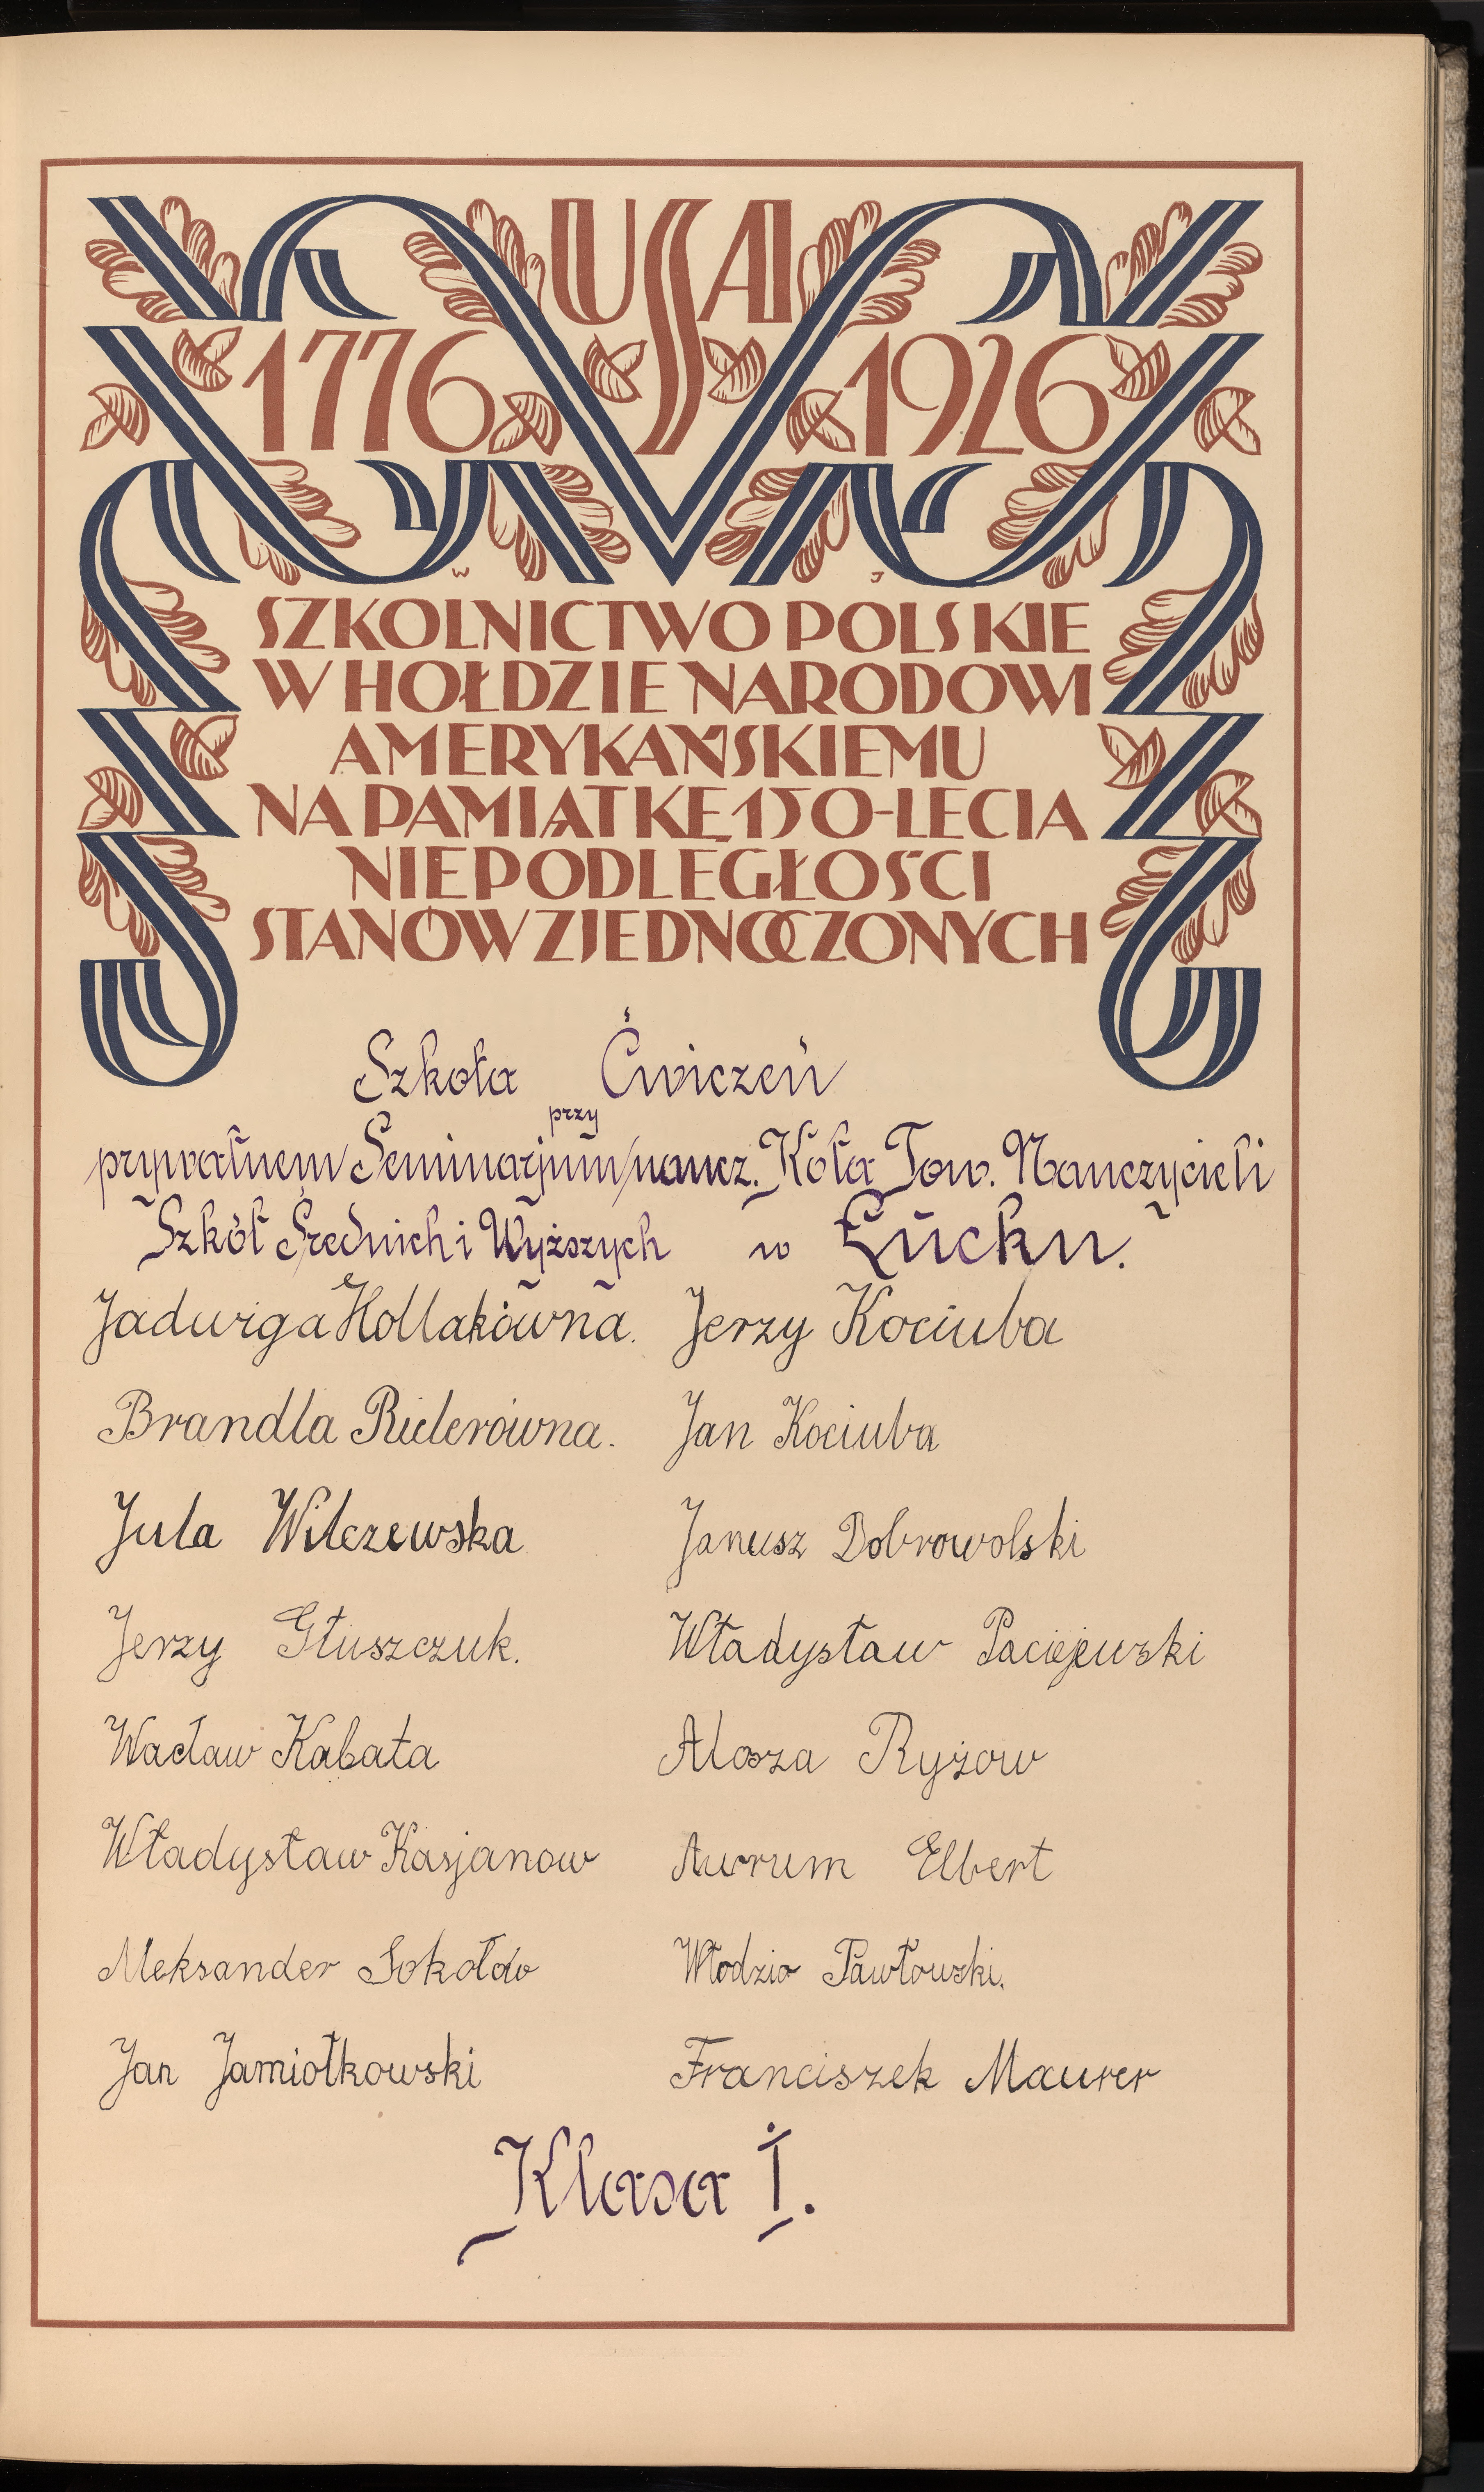 USA
1776 1926
W J
SZKOLNICTWO POLSKIE
W HOŁDZIE NARODOWI
AMERYKAŃSKIEMU
NA PAMIĄTKĘ 150-LECIA
NIEPODLEGŁOŚCI
STANÓW ZJEDNOCZONYCH
Szkoła Ćwiczeń
przy
prywatnem Seminarjum naucz. Koła Tow. Nauczycieli
Szkół Średnich i Wyższych w Łucku.
Jadwiga Kołłakówna. Jerzy Kociuba
Brandla Riderówna. Jan Kociuba
Jula Wilczewska Janusz Dobrowolski
Jerzy Głuszczuk. Władysław Paciejewski
Wacław Kabata Alosza Ryżow
Władysław Kasjanow Awrum Elbert
Aleksander Sokołów Włodzio Pawłowski.
Jan Jamiołkowski Franciszek Maurer
Klasa I.